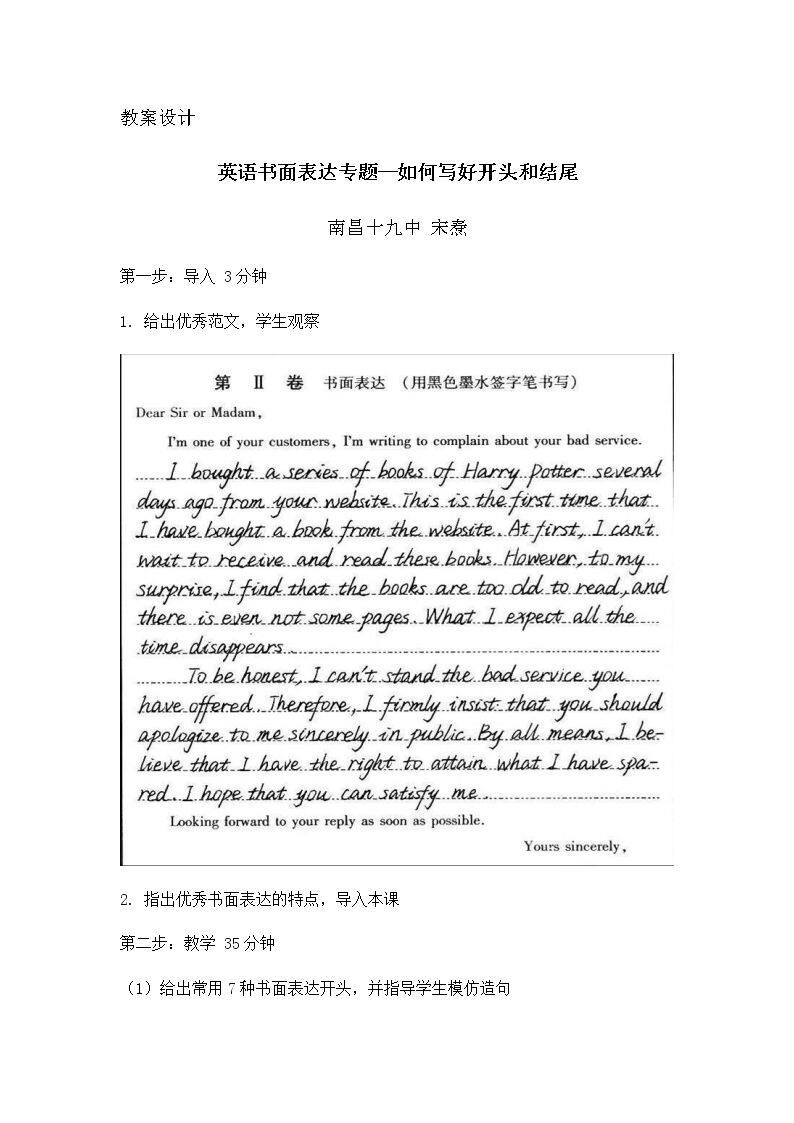 教案设计
英语书面表达专题—如何写好开头和结尾
南昌十九中 宋焘
第一步：导入 3分钟
1. 给出优秀范文，学生观察
第 Ⅱ 卷 书面表达 （用黑色墨水签字笔书写）
Dear Sir or Madam,
I'm one of your customers, I'm writing to complain about your bad service.
I bought a series of books of Harry Potter several
days ago from your website. This is the first time that
I have bought a book from the website. At first, I can't
wait to receive and read these books. However, to my
surprise, I find that the books are too old to read, and
there is even not some pages. What I expect all the
time disappears.
To be honest, I can't stand the bad service you
have offered. Therefore, I firmly insist that you should
apologize to me sincerely in public. By all means, I be-
lieve that I have the right to attain what I have spa-
red. I hope that you can satisfy me.
Looking forward to your reply as soon as possible.
Yours sincerely,
2. 指出优秀书面表达的特点，导入本课
第二步：教学 35分钟
（1）给出常用7种书面表达开头，并指导学生模仿造句